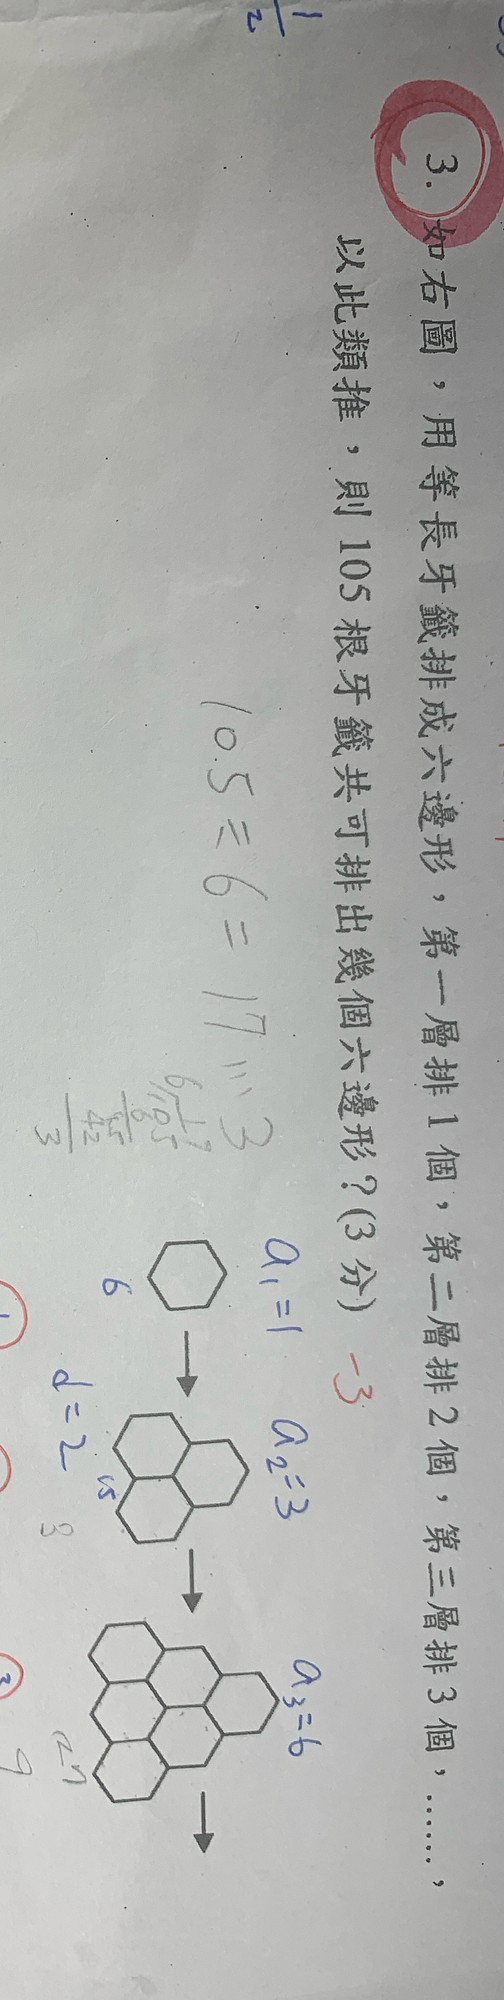 1/2
3. 如右圖，用等長牙籤排成六邊形，第一層排 1 個，第二層排 2 個，第三層排 3 個，……，
以此類推，則 105 根牙籤共可排出幾個六邊形？(3 分) -3
105 ÷ 6 = 17 … 3
17
6 105
6
45
42
3
a₁=1
a₂=3
a₃=6
6
15
27
d=2
9